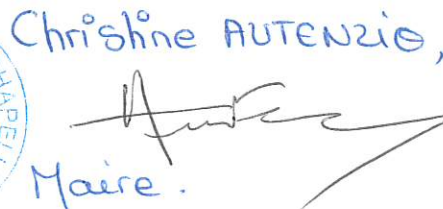 Christine AUTENZIO,
HAPEL
Maire.